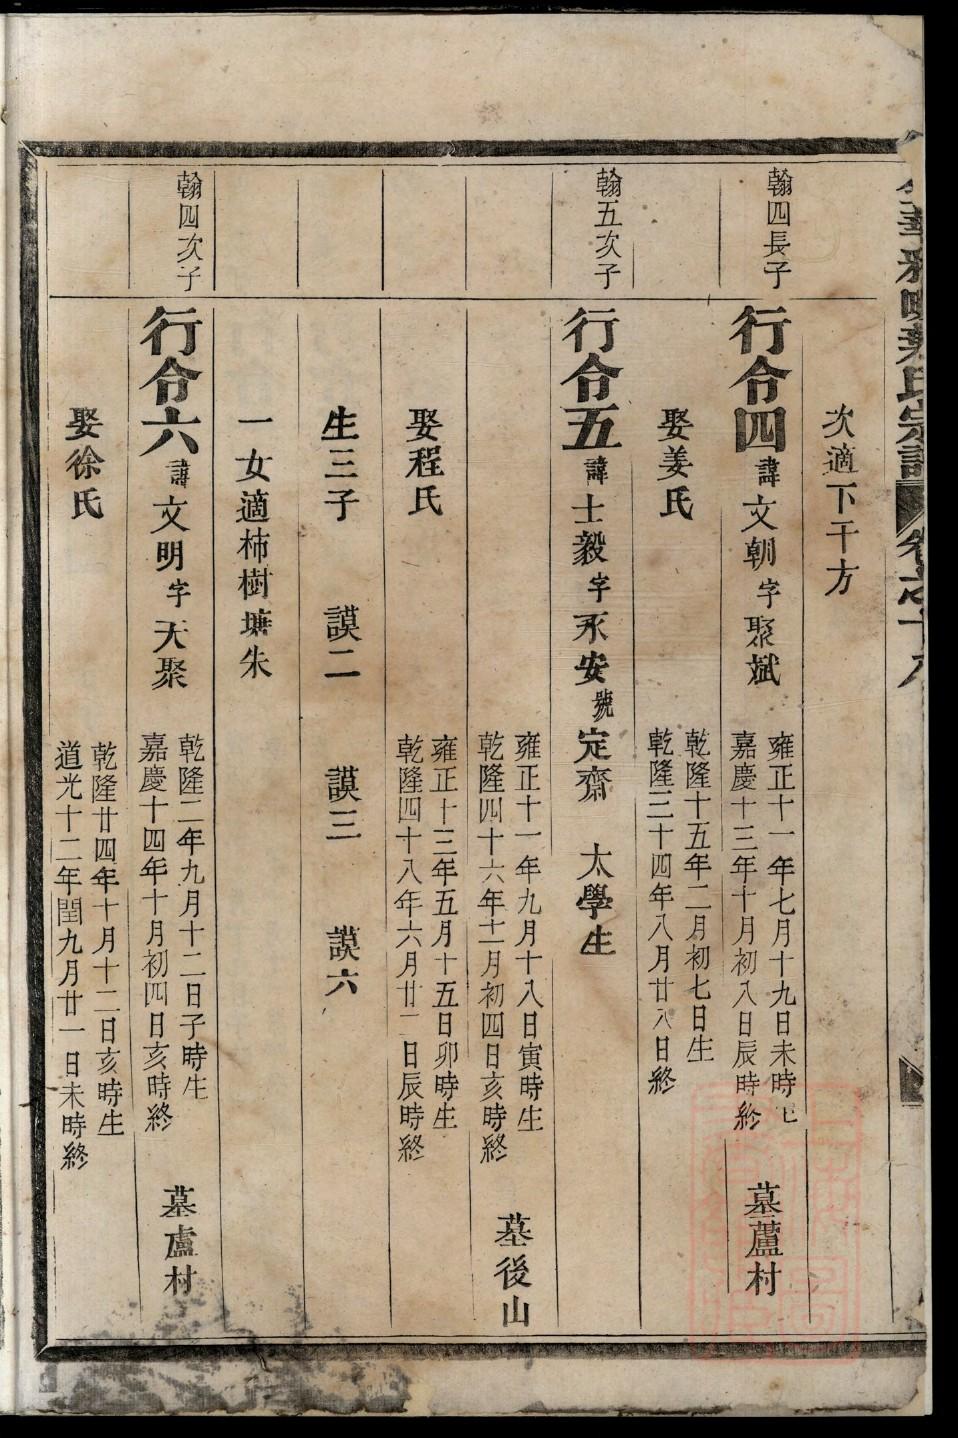 宗譜
卷之十八
次適下干方
翰四長子
行令四諱文朝字聚斌
雍正十一年七月十九日未時
嘉慶十三年十月初八日辰時終
墓蘆村
娶姜氏
乾隆十五年二月初七日生
乾隆三十四年八月廿八日終
翰五次子
行令五諱士毅字永安號定齋 太學生
雍正十一年九月十八日寅時生
乾隆四十六年十一月初四日亥時終
墓後山
娶程氏
雍正十三年五月十五日卯時生
乾隆四十八年六月廿二日辰時終
生三子 謨二 謨三 謨六
一女適柿樹塘朱
翰四次子
行令六諱文明字天聚
乾隆二年九月十二日子時生
嘉慶十四年十月初四日亥時終
墓盧村
娶徐氏
乾隆廿四年十月十二日亥時生
道光十二年閏九月廿一日未時終